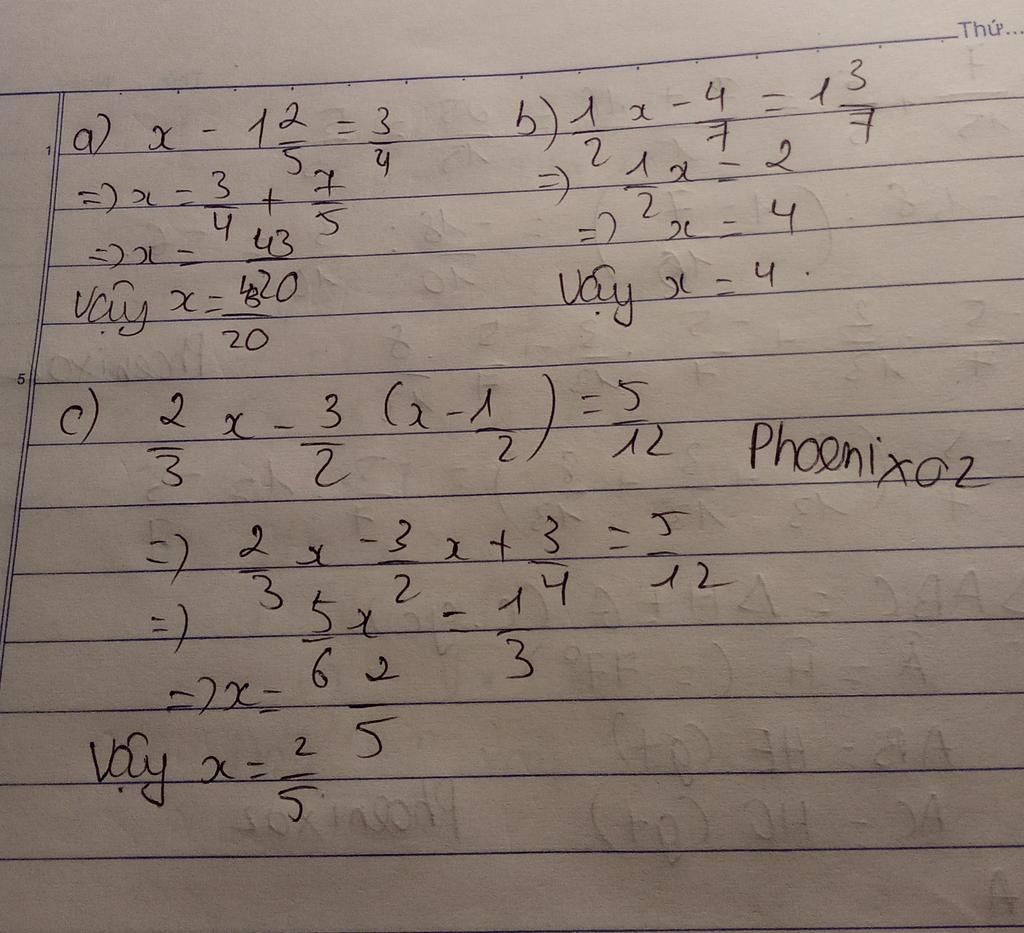 Thứ...
a) x - 1 2/5 = 3/4
=> x = 3/4 + 7/5
=> x = 43/20
Vậy x = 43/20
b) 1/2 x - 4/7 = 1 3/7
=> 1/2 x = 2
=> x = 4
Vậy x = 4.
c) 2/3 x - 3/2 (x - 1/2) = 5/12
Phoenixoz
=> 2/3 x - 3/2 x + 3/4 = 5/12
=> 5/6 x = 1/3
=> x = 2/5
Vậy x = 2/5
1
5